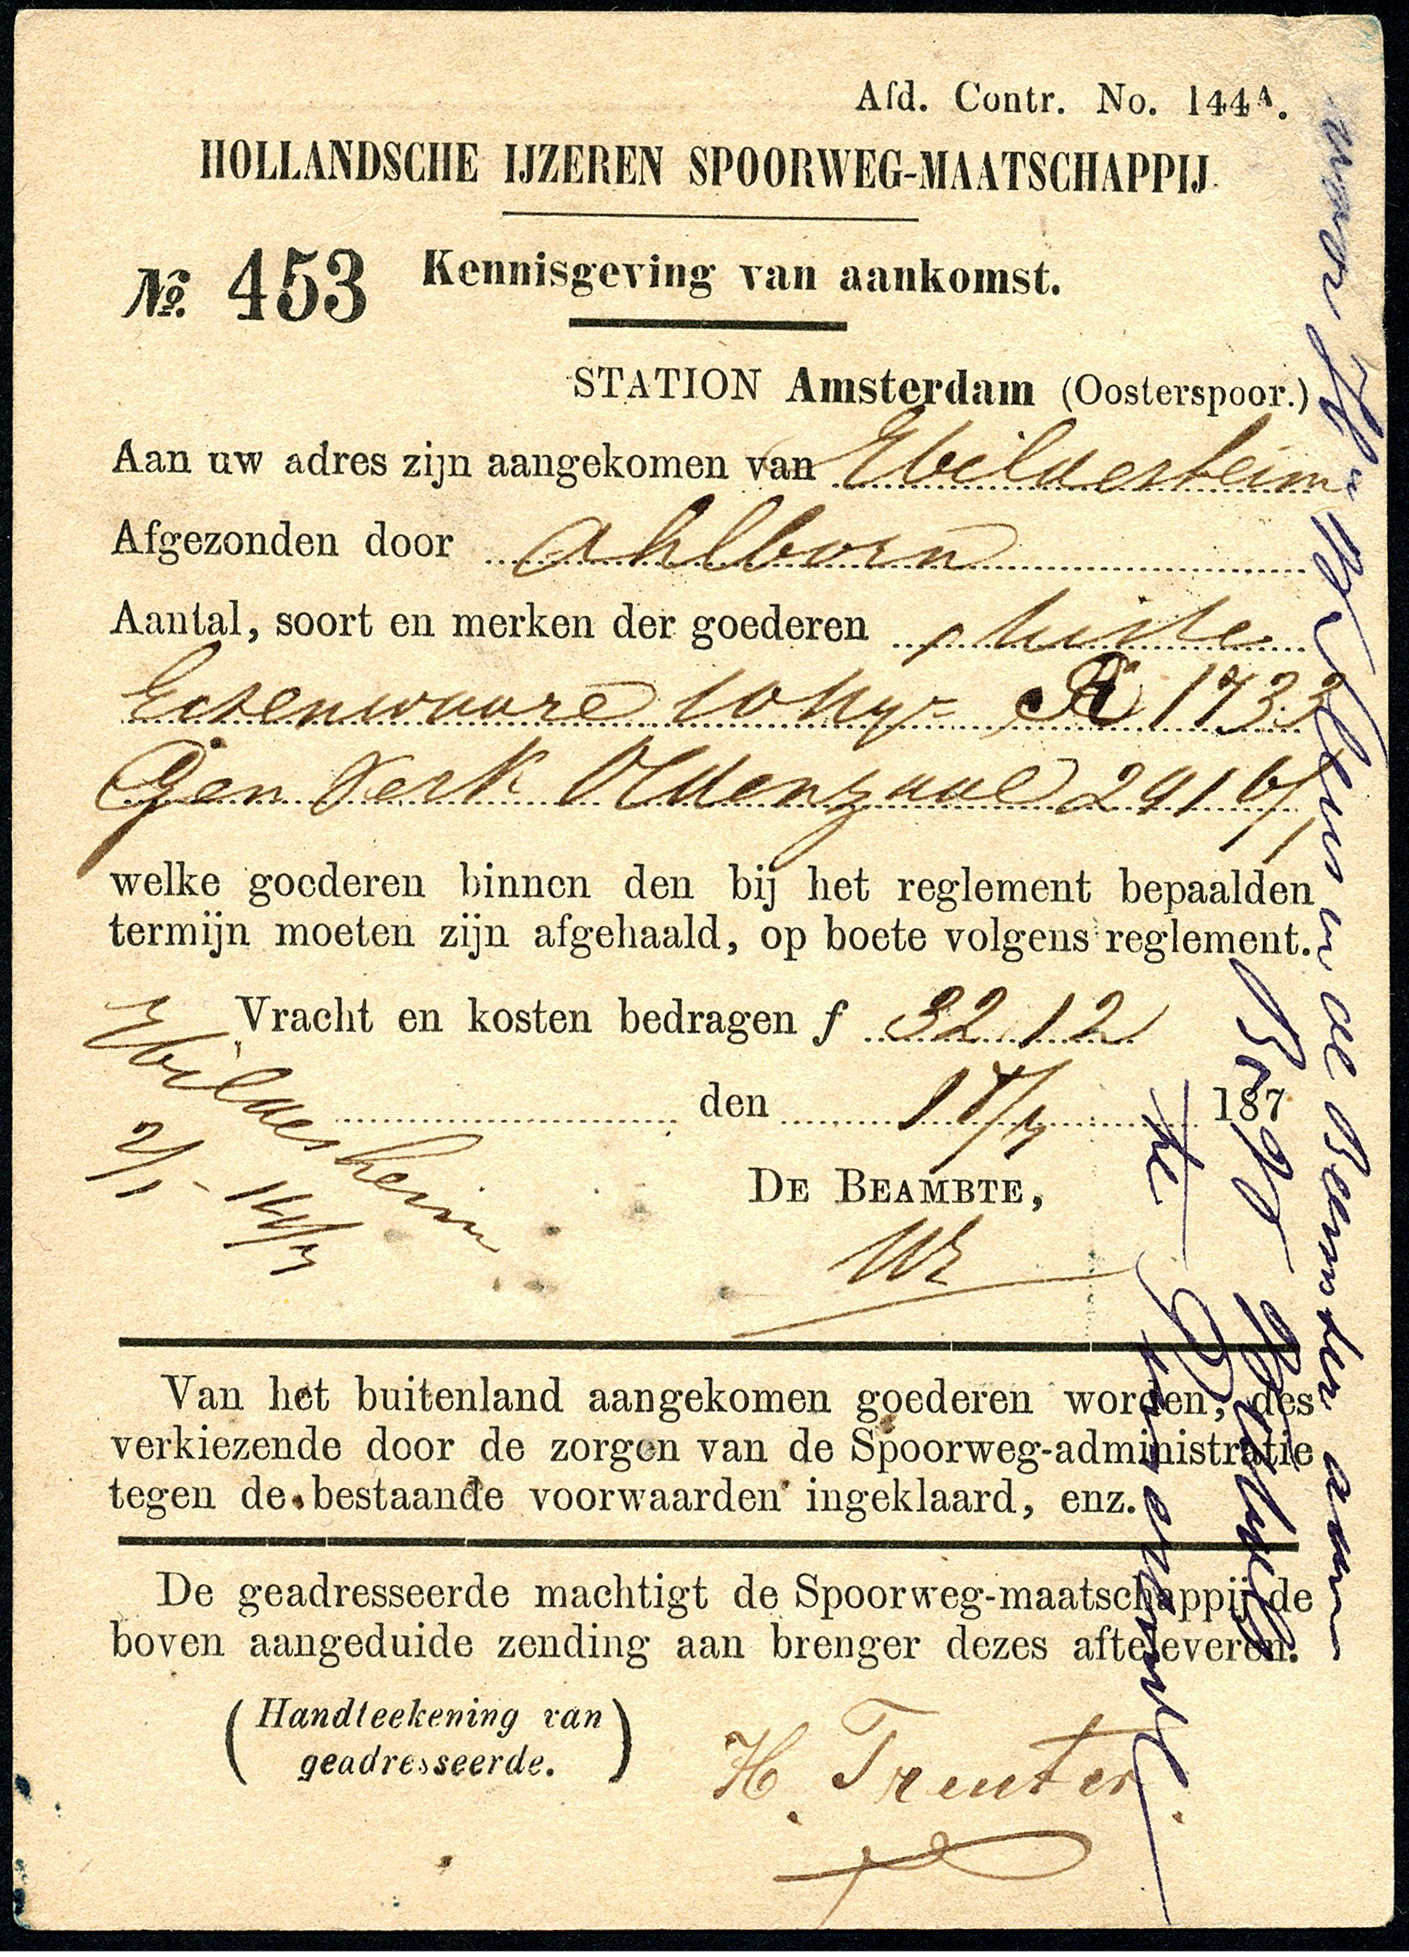 Afd. Contr. No. 144A.
HOLLANDSCHE IJZEREN SPOORWEG-MAATSCHAPPIJ.
No. 453 Kennisgeving van aankomst.
STATION Amsterdam (Oosterspoor.)
Aan uw adres zijn aangekomen van Hildesheim
Afgezonden door Ahlborn
Aantal, soort en merken der goederen 1 kiste
Eisenwaare 1733
Oldenzaal
welke goederen binnen den bij het reglement bepaalden
termijn moeten zijn afgehaald, op boete volgens reglement.
Vracht en kosten bedragen f 32 12
den 187
Hildesheim
DE BEAMBTE,
Van het buitenland aangekomen goederen worden, des
verkiezende door de zorgen van de Spoorweg-administratie
tegen de bestaande voorwaarden ingeklaard, enz.
De geadresseerde machtigt de Spoorweg-maatschappij de
boven aangeduide zending aan brenger dezes afteleveren.
(Handteekening van
geadresseerde.)
H. Treuter.
voor in de Beemster aan
te Purmerend